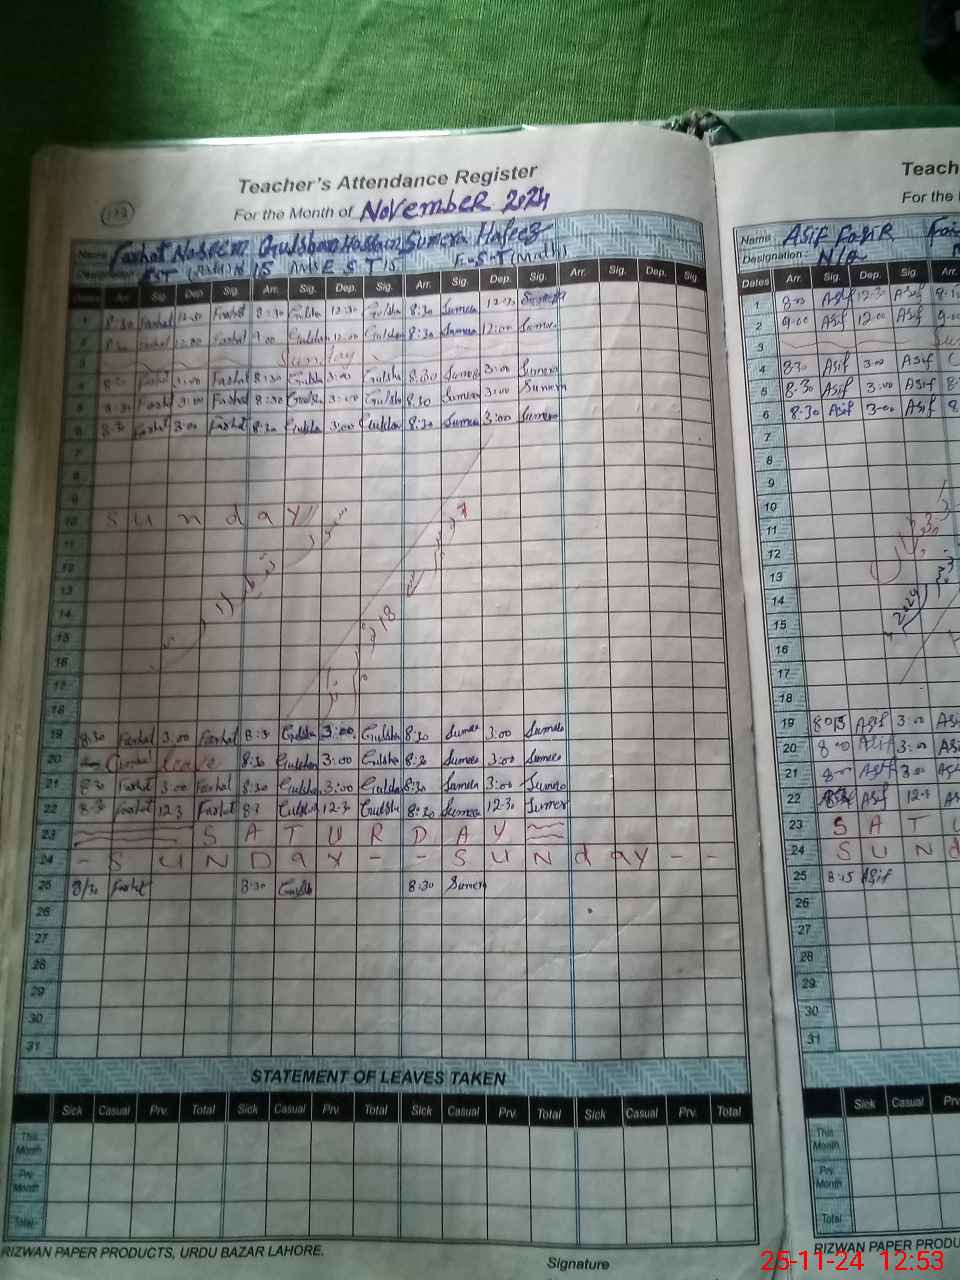 Teacher's Attendance Register
For the Month of November 2024
Name Farhat Naseem Gulshan Hussain Sumera Hafeez
Designation EST
Dates Arr. Sig. Dep. Sig. Arr. Sig. Dep. Sig. Arr. Sig. Dep. Sig. Arr. Sig. Dep. Sig.
1 8:30 Farhat 12:30 Farhat 8:30 Gulsha 12:30 Gulsha 8:30 Sumera 12:30 Sumera
2 8:30 Farhat 12:00 Farhat 9:00 Gulsha 12:00 Gulsha 8:30 Sumera 12:00 Sumera
3 Sunday
4 8:30 Farhat 3:00 Farhat 8:30 Gulsha 3:00 Gulsha 8:30 Sumera 3:00 Sumera
5 8:30 Farhat 3:00 Farhat 8:30 Gulsha 3:00 Gulsha 8:30 Sumera 3:00 Sumera
6 8:30 Farhat 3:00 Farhat 8:30 Gulsha 3:00 Gulsha 8:30 Sumera 3:00 Sumera
7
8
9
10 Sunday
11
12
13
14
15
16
17
18
19 8:30 Farhat 3:00 Farhat 8:30 Gulsha 3:00 Gulsha 8:30 Sumera 3:00 Sumera
20 leave 8:30 Gulsha 3:00 Gulsha 8:30 Sumera 3:00 Sumera
21 8:30 Farhat 3:00 Farhat 8:30 Gulsha 3:00 Gulsha 8:30 Sumera 3:00 Sumera
22 8:30 Farhat 12:3 Farhat 8:3 Gulsha 12:30 Gulsha 8:30 Sumera 12:30 Sumera
23 SATURDAY
24 - SUNDAY - - SUNDAY - -
25 8:30 Farhat 8:30 Gulsh 8:30 Sumera
26
27
28
29
30
31
STATEMENT OF LEAVES TAKEN
Sick Casual Prv. Total Sick Casual Prv. Total Sick Casual Prv. Total Sick Casual Prv. Total
This Month
Prv. Month
Total
RIZWAN PAPER PRODUCTS, URDU BAZAR LAHORE.
Signature
Teach
For the
Name Asif
Designation N/Q
Dates Arr. Sig. Dep. Sig. Arr.
1 8:00 Asif 12:30 Asif
2 9:00 Asif 12:00 Asif 9:00
3
4 8:30 Asif 3:00 Asif
5 8:30 Asif 3:00 Asif
6 8:30 Asif 3:00 Asif
7
8
9
10
11
12
13
14
15
16
17
18
19 8:15 Asif 3:00 Asif
20 8:00 Asif 3:00 Asif
21 8:00 Asif 3:00 Asif
22 Asif 12:3
23 SATU
24 SUND
25 8:15 Asif
26
27
28
29
30
31
Sick Casual Prv.
This Month
Prv. Month
Total
RIZWAN PAPER PRODU
25-11-24 12:53